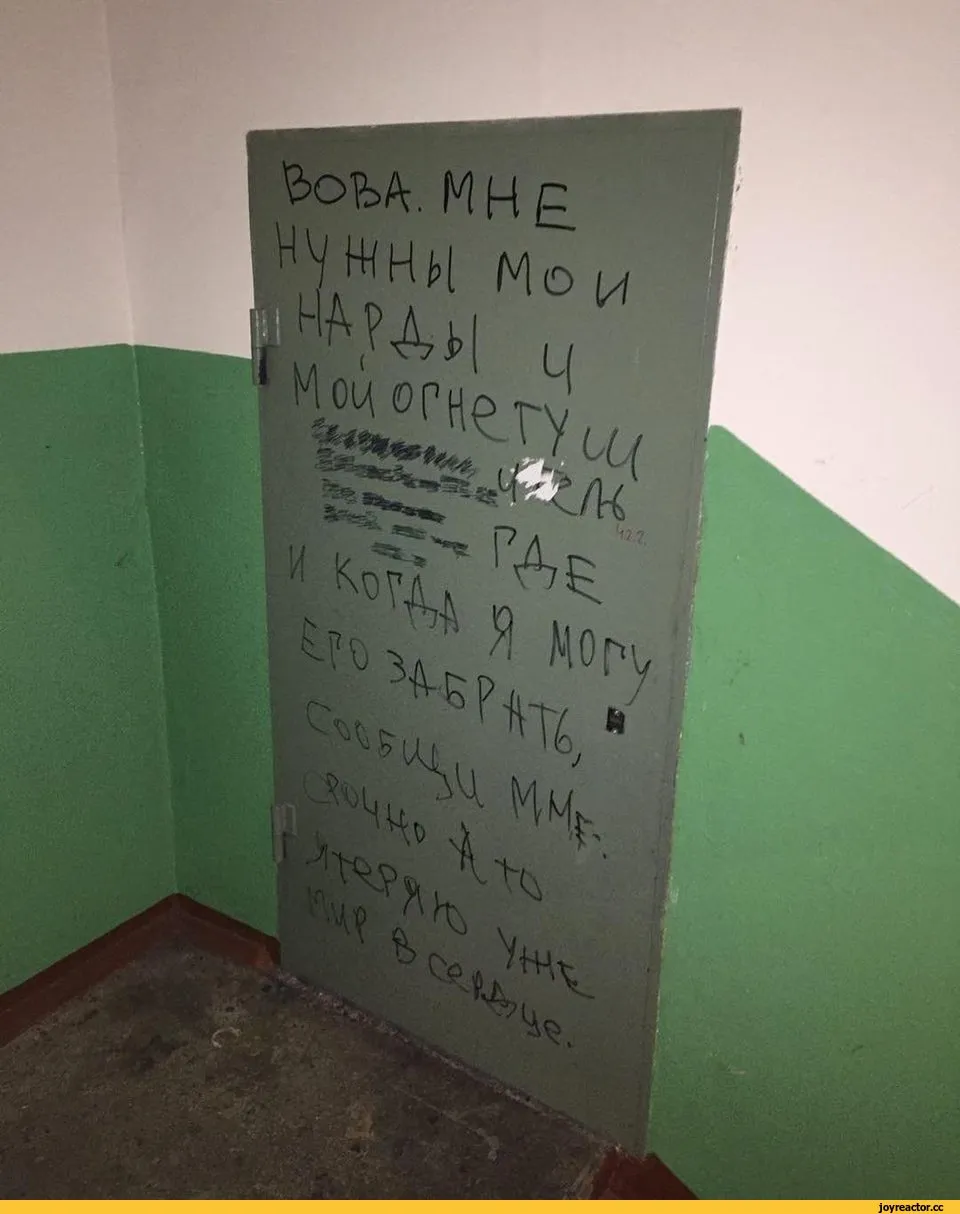 ВОВА. МНЕ
НУЖНЫ МОИ
НАРДЫ И
МОЙ ОГНЕТУШ
ИТЕЛЬ
422.
ГДЕ
И КОГДА Я МОГУ
ЕГО ЗАБРАТЬ,
СООБЩИ МНЕ.
СРОЧНО А ТО
ЯТЕРЯЮ УЖЕ
МИР В СЕРДЦЕ.
joyreactor.cc